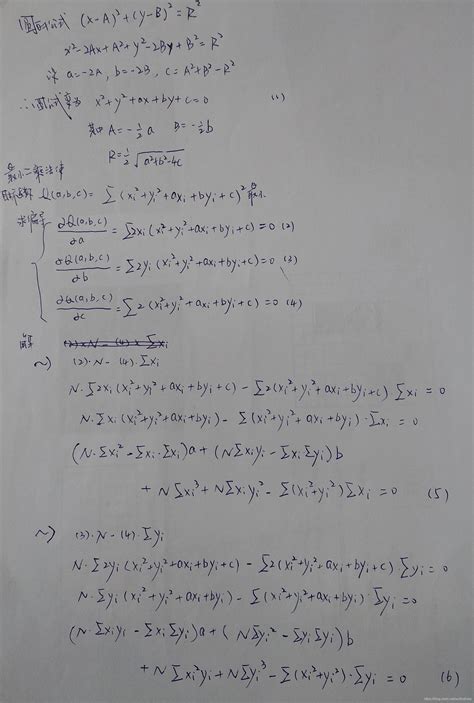 圆的公式 (x-A)²+(y-B)²=R²
x²-2Ax+A²+y²-2By+B²=R²
令 a=-2A, b=-2B, c=A²+B²-R²
∴圆公式变为 x²+y²+ax+by+c=0 (1)
其中 A=-½a B=-½b
R=½√(a²+b²-4c)
最小二乘法
Q(a,b,c)=Σ(xᵢ²+yᵢ²+axᵢ+byᵢ+c)² 最小
求偏导
∂Q(a,b,c)/∂a = Σ2xᵢ(xᵢ²+yᵢ²+axᵢ+byᵢ+c)=0 (2)
∂Q(a,b,c)/∂b = Σ2yᵢ(xᵢ²+yᵢ²+axᵢ+byᵢ+c)=0 (3)
∂Q(a,b,c)/∂c = Σ2(xᵢ²+yᵢ²+axᵢ+byᵢ+c)=0 (4)
解
(2)·N-(4)·Σxᵢ
N·Σ2xᵢ(xᵢ²+yᵢ²+axᵢ+byᵢ+c)-Σ2(xᵢ²+yᵢ²+axᵢ+byᵢ+c)·Σxᵢ=0
N·Σxᵢ(xᵢ²+yᵢ²+axᵢ+byᵢ)-Σ(xᵢ²+yᵢ²+axᵢ+byᵢ)·Σxᵢ=0
(N·Σxᵢ²-Σxᵢ·Σxᵢ)a+(NΣxᵢyᵢ-ΣxᵢΣyᵢ)b
+NΣxᵢ³+NΣxᵢyᵢ²-Σ(xᵢ²+yᵢ²)Σxᵢ=0 (5)
(3)·N-(4)·Σyᵢ
N·Σ2yᵢ(xᵢ²+yᵢ²+axᵢ+byᵢ+c)-Σ2(xᵢ²+yᵢ²+axᵢ+byᵢ+c)Σyᵢ=0
N·Σyᵢ(xᵢ²+yᵢ²+axᵢ+byᵢ)-Σ(xᵢ²+yᵢ²+axᵢ+byᵢ)·Σyᵢ=0
(N·Σxᵢyᵢ-ΣxᵢΣyᵢ)a+(NΣyᵢ²-ΣyᵢΣyᵢ)b
+NΣxᵢ²yᵢ+NΣyᵢ³-Σ(xᵢ²+yᵢ²)·Σyᵢ=0 (6)